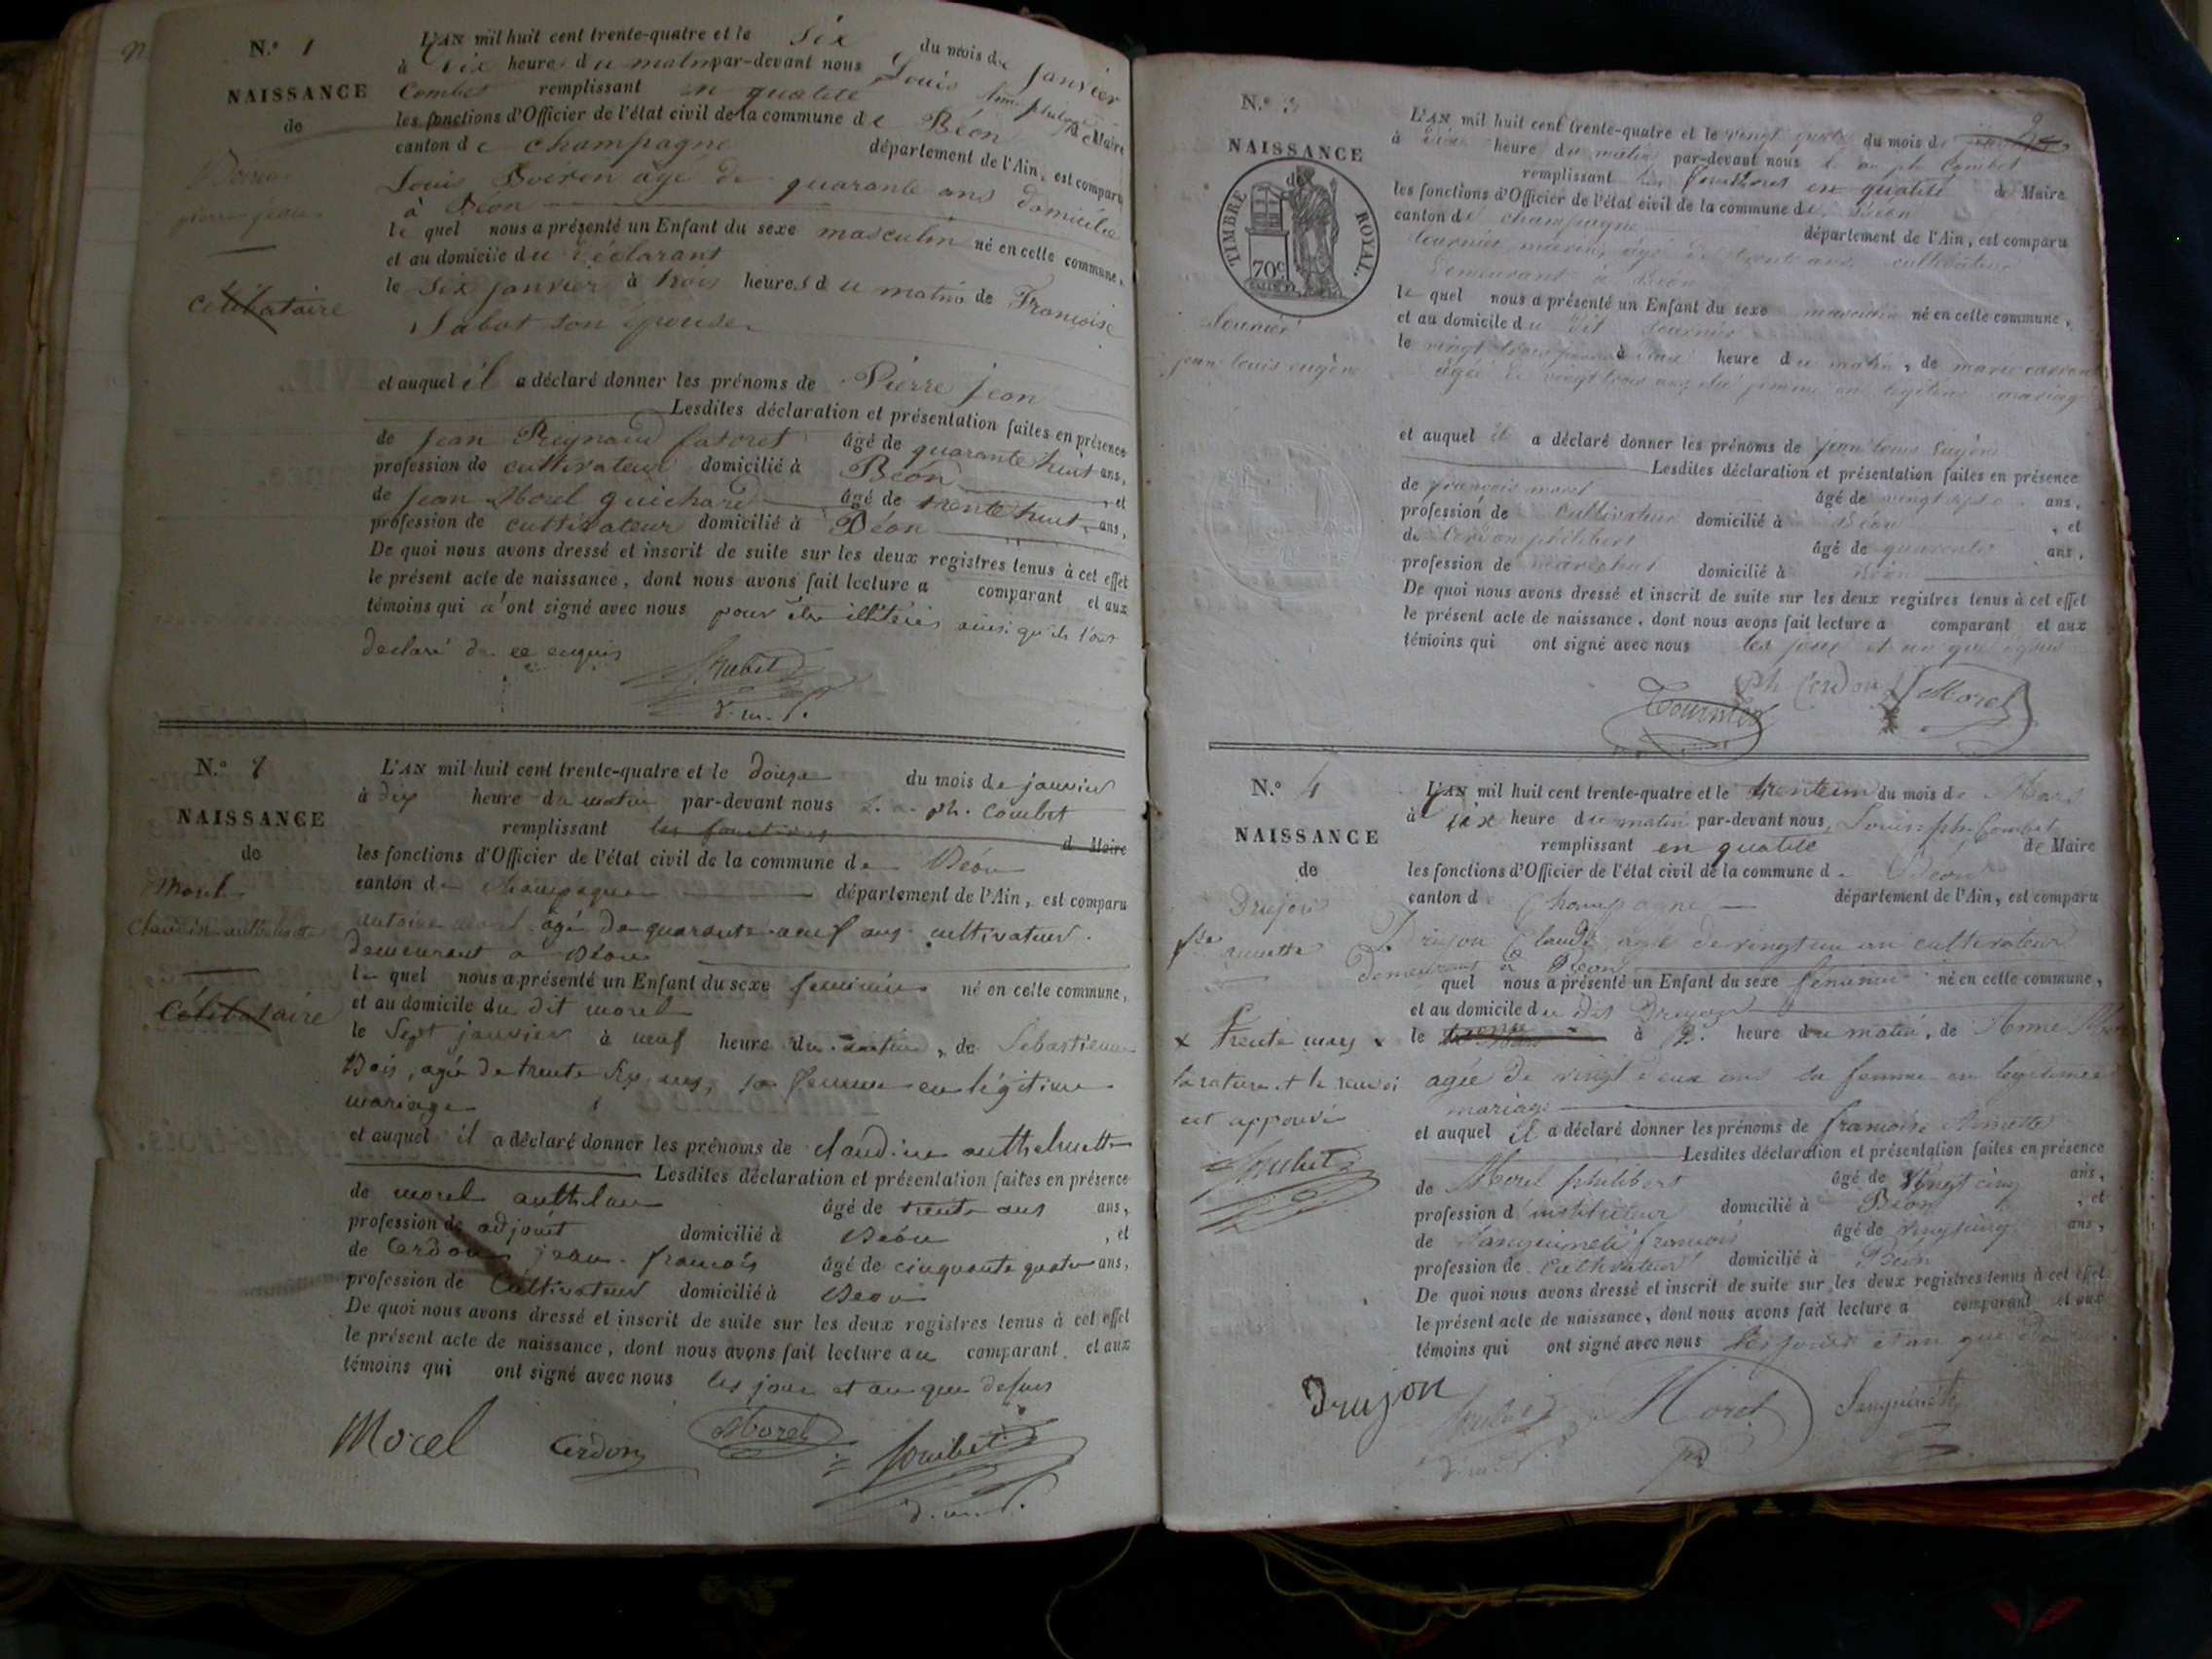 N.° 1
NAISSANCE
de
pierre jean
Célibataire
L'AN mil huit cent trente-quatre et le six du mois de janvier
à dix heures du matin par-devant nous Louis
Combet remplissant en qualité de Maire
les fonctions d'Officier de l'état civil de la commune de Béon
canton de champagne département de l'Ain, est comparu
Louis âgé de quarante ans domicilié
à Béon
le quel nous a présenté un Enfant du sexe masculin né en cette commune,
et au domicile du déclarant
le six janvier à trois heures du matin de Françoise
Sabot son épouse
et auquel il a déclaré donner les prénoms de Pierre jean
Lesdites déclaration et présentation faites en présence
de jean Reynaud âgé de quarante huit ans,
profession de cultivateur domicilié à Béon et
de jean Morel guichard âgé de trente huit ans,
profession de cultivateur domicilié à Béon
De quoi nous avons dressé et inscrit de suite sur les deux registres tenus à cet effet
le présent acte de naissance, dont nous avons fait lecture a comparant et aux
témoins qui n'ont signé avec nous pour être illitérés ainsi qu'ils l'ont
déclaré de ce enquis
d. m. f.
N.° 2
NAISSANCE
de
Morel
Célibataire
L'AN mil huit cent trente-quatre et le douze du mois de janvier
à dix heure du matin par-devant nous L. a. ph. Combet
remplissant les fonctions d Maire
les fonctions d'Officier de l'état civil de la commune de Béon
canton de champagne département de l'Ain, est comparu
antoine morel âgé de quarante neuf ans cultivateur
demeurant a Béon
le quel nous a présenté un Enfant du sexe feminin né en cette commune,
et au domicile du dit morel
le sept janvier à neuf heure du matin, de Sébastienne
Bois, agée de trente six ans, sa femme en légitime
mariage
et auquel il a déclaré donner les prénoms de claudine anthelmette
Lesdites déclaration et présentation faites en présence
de morel anthelme âgé de trente ans ans,
profession de adjoint domicilié à Béon , et
de Cerdon jean françois âgé de cinquante quatre ans,
profession de Cultivateur domicilié à Béon
De quoi nous avons dressé et inscrit de suite sur les deux registres tenus à cet effet
le présent acte de naissance, dont nous avons fait lecture au comparant et aux
témoins qui ont signé avec nous les jour et an que dessus
Morel Cerdon Morel Combet
d. m. f.
N.° 3
NAISSANCE
de
TIMBRE ROYAL.
70c
jean louis eugène
L'AN mil huit cent trente-quatre et le vingt quatre du mois de
à heure du matin par-devant nous L. a. ph. Combet
remplissant les fonctions en qualité de Maire
les fonctions d'Officier de l'état civil de la commune de Béon
canton de champagne département de l'Ain, est comparu
âgé de trente ans cultivateur
demeurant à Béon
le quel nous a présenté un Enfant du sexe masculin né en cette commune,
et au domicile du dit
le vingt trois à heure du matin, de marie
âgée de vingt ans sa femme en légitime mariage
et auquel il a déclaré donner les prénoms de jean louis Eugène
Lesdites déclaration et présentation faites en présence
de françois morel âgé de vingt sept ans,
profession de cultivateur domicilié à Béon , et
de Cerdon philibert âgé de quarante ans,
profession de domicilié à Béon
De quoi nous avons dressé et inscrit de suite sur les deux registres tenus à cet effet
le présent acte de naissance, dont nous avons fait lecture a comparant et aux
témoins qui ont signé avec nous les jour et an que dessus
ph Cerdon Morel
Tournier
N.° 4
NAISSANCE
de
Drujon
annette
x trente mars x
la rature et le renvoi
est approuvé
L'AN mil huit cent trente-quatre et le trente un du mois de Mars
à six heure du matin par-devant nous Louis ph. Combet
remplissant en qualité de Maire
les fonctions d'Officier de l'état civil de la commune de Béon
canton de Champagne département de l'Ain, est comparu
Drujon Claude âgé de vingt un an cultivateur
demeurant à Béon
quel nous a présenté un Enfant du sexe feminin né en cette commune,
et au domicile du dit Drujon
le à 2 heure du matin, de Anne
agée de vingt deux ans sa femme en légitime
mariage
et auquel il a déclaré donner les prénoms de françoise Annette
Lesdites déclaration et présentation faites en présence
de Morel philibert âgé de vingt cinq ans,
profession d instituteur domicilié à Béon , et
de Sanguinet françois âgé de vingt cinq ans,
profession de Cultivateur domicilié à Béon
De quoi nous avons dressé et inscrit de suite sur les deux registres tenus à cet effet
le présent acte de naissance, dont nous avons fait lecture a comparant et aux
témoins qui ont signé avec nous les jour et an que
Drujon Combet Morel